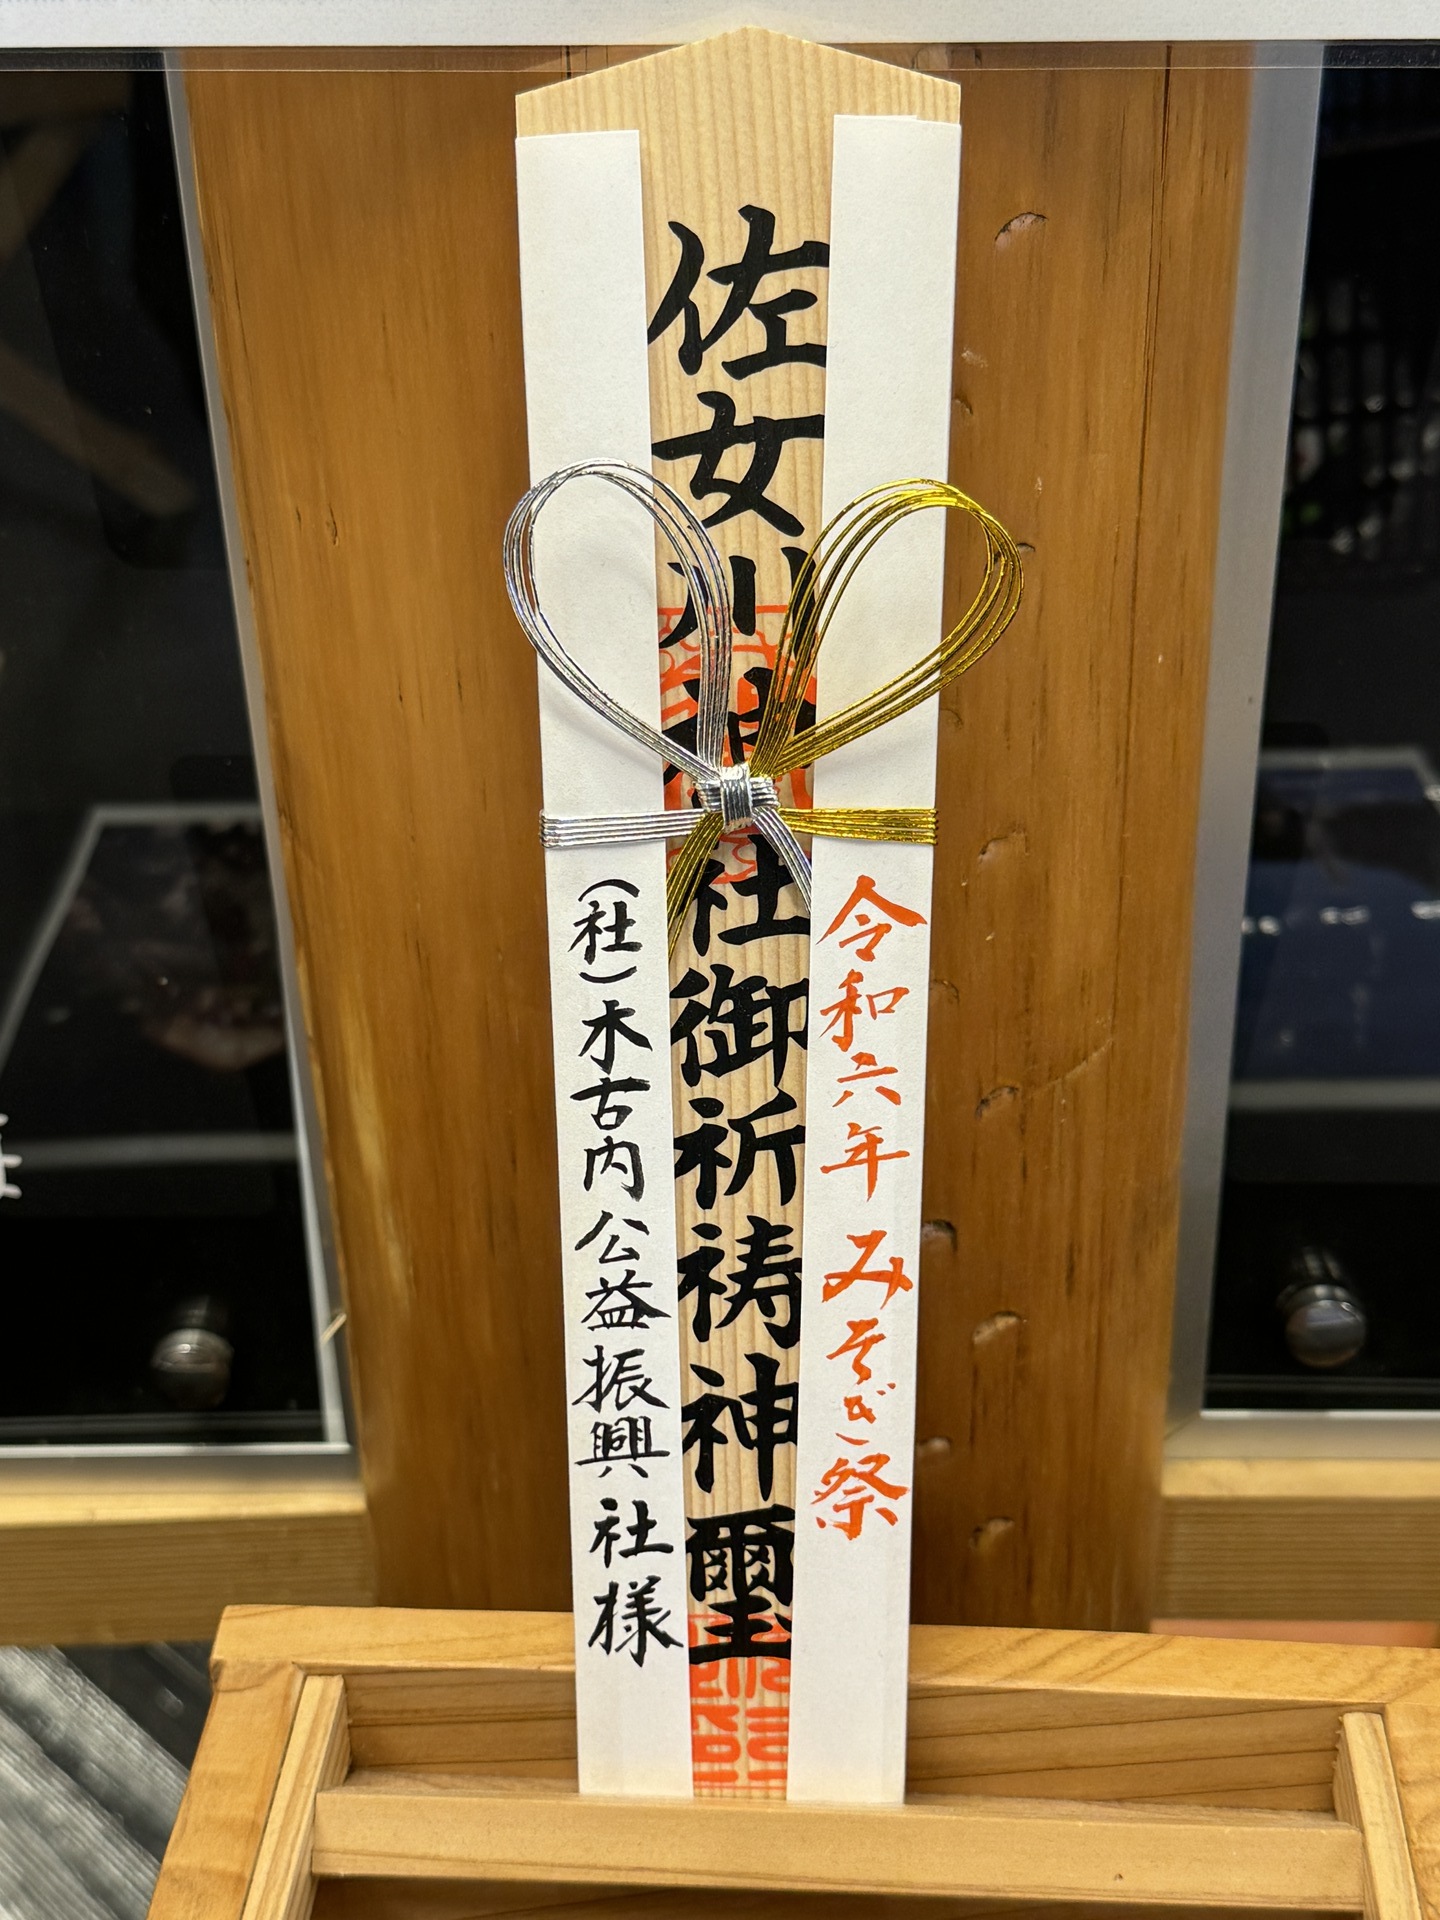 令和六年 みそぎ祭
佐女川神社御祈祷神璽
(社)木古内公益振興社様